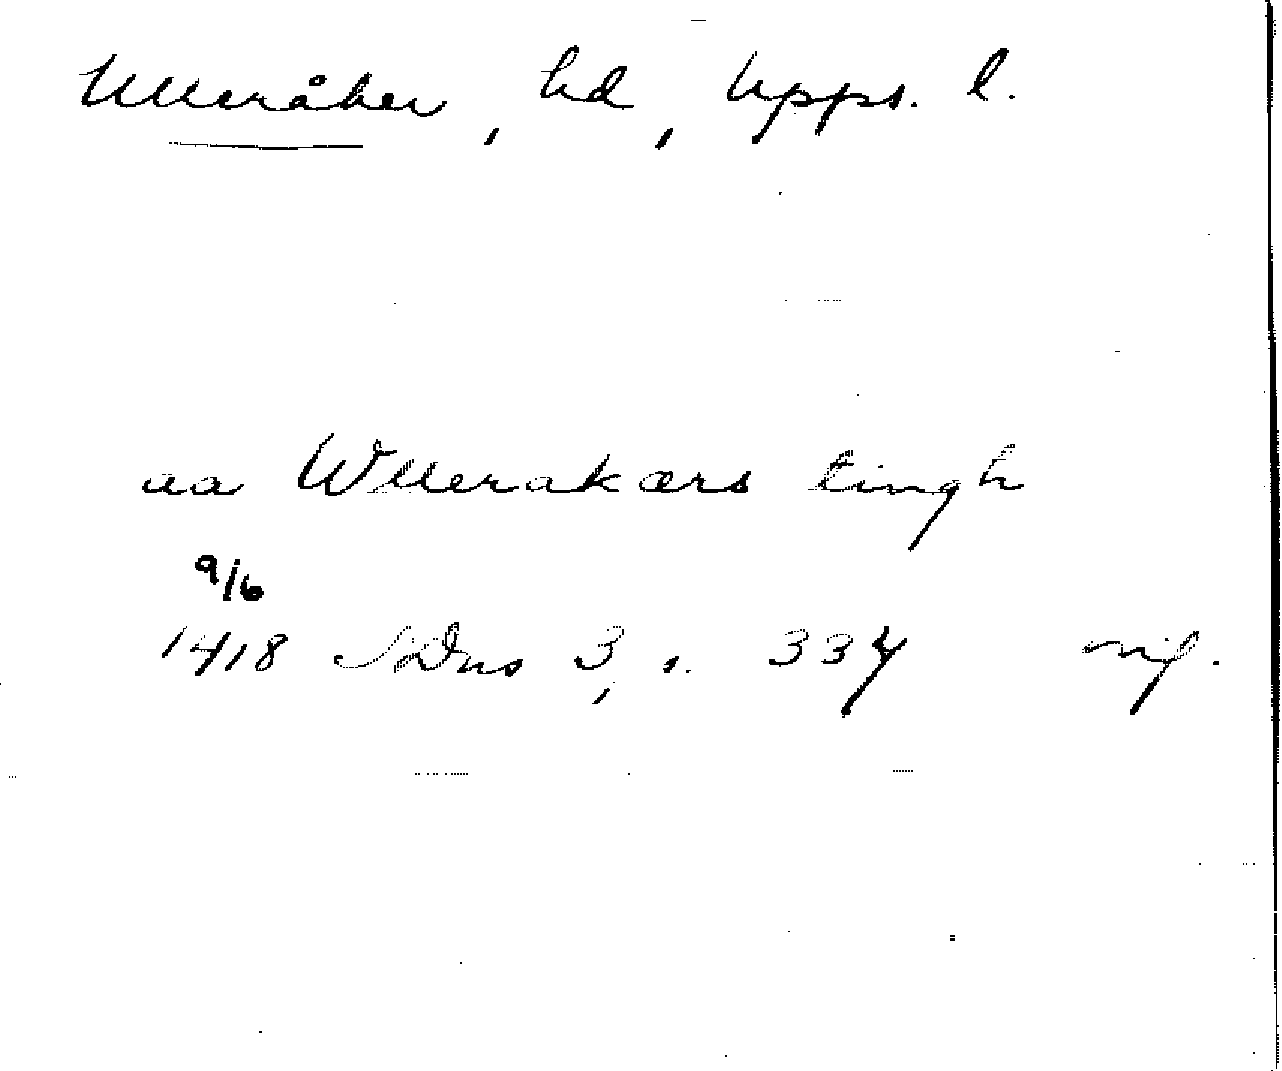 Ulleråker, hd, Upps. l.
aa Wllerakærs tingh
9/6
1418 SDns 3, s. 334 mif.